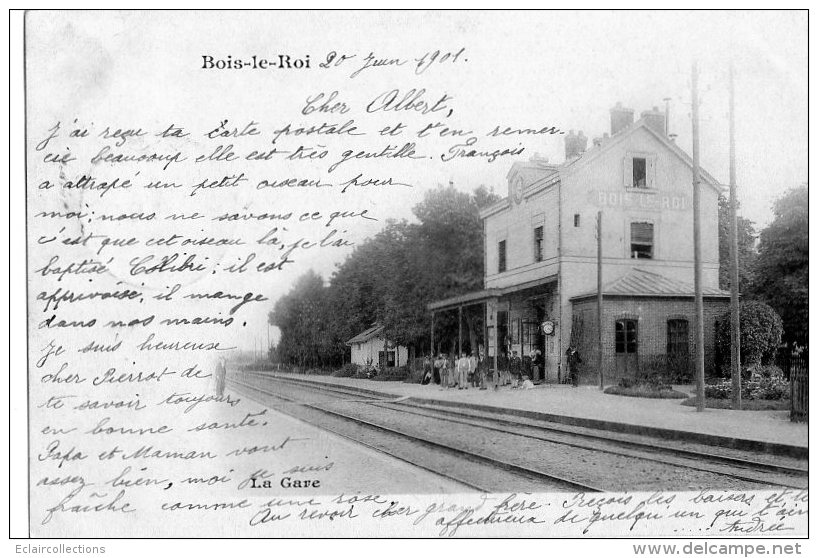 Bois-le-Roi 20 Juin 1901.
Cher Albert,
J'ai reçu ta carte postale et t'en remer-
cie beaucoup elle est très gentille. François
a attrapé un petit oiseau pour
moi; nous ne savons ce que
c'est que cet oiseau là, je l'ai
baptisé Colibri; il est
apprivoisé, il mange
dans nos mains.
Je suis heureuse
cher Pierrot de
te savoir toujours
en bonne santé.
Papa et Maman vont
assez bien, moi je suis
fraîche comme une rose.
BOIS-LE-ROI
La Gare
Au revoir cher grand frère. Reçois les baisers
affectueux de quelqu'un qui t'aim
Andrée
Eclaircollections
www.delcampe.net